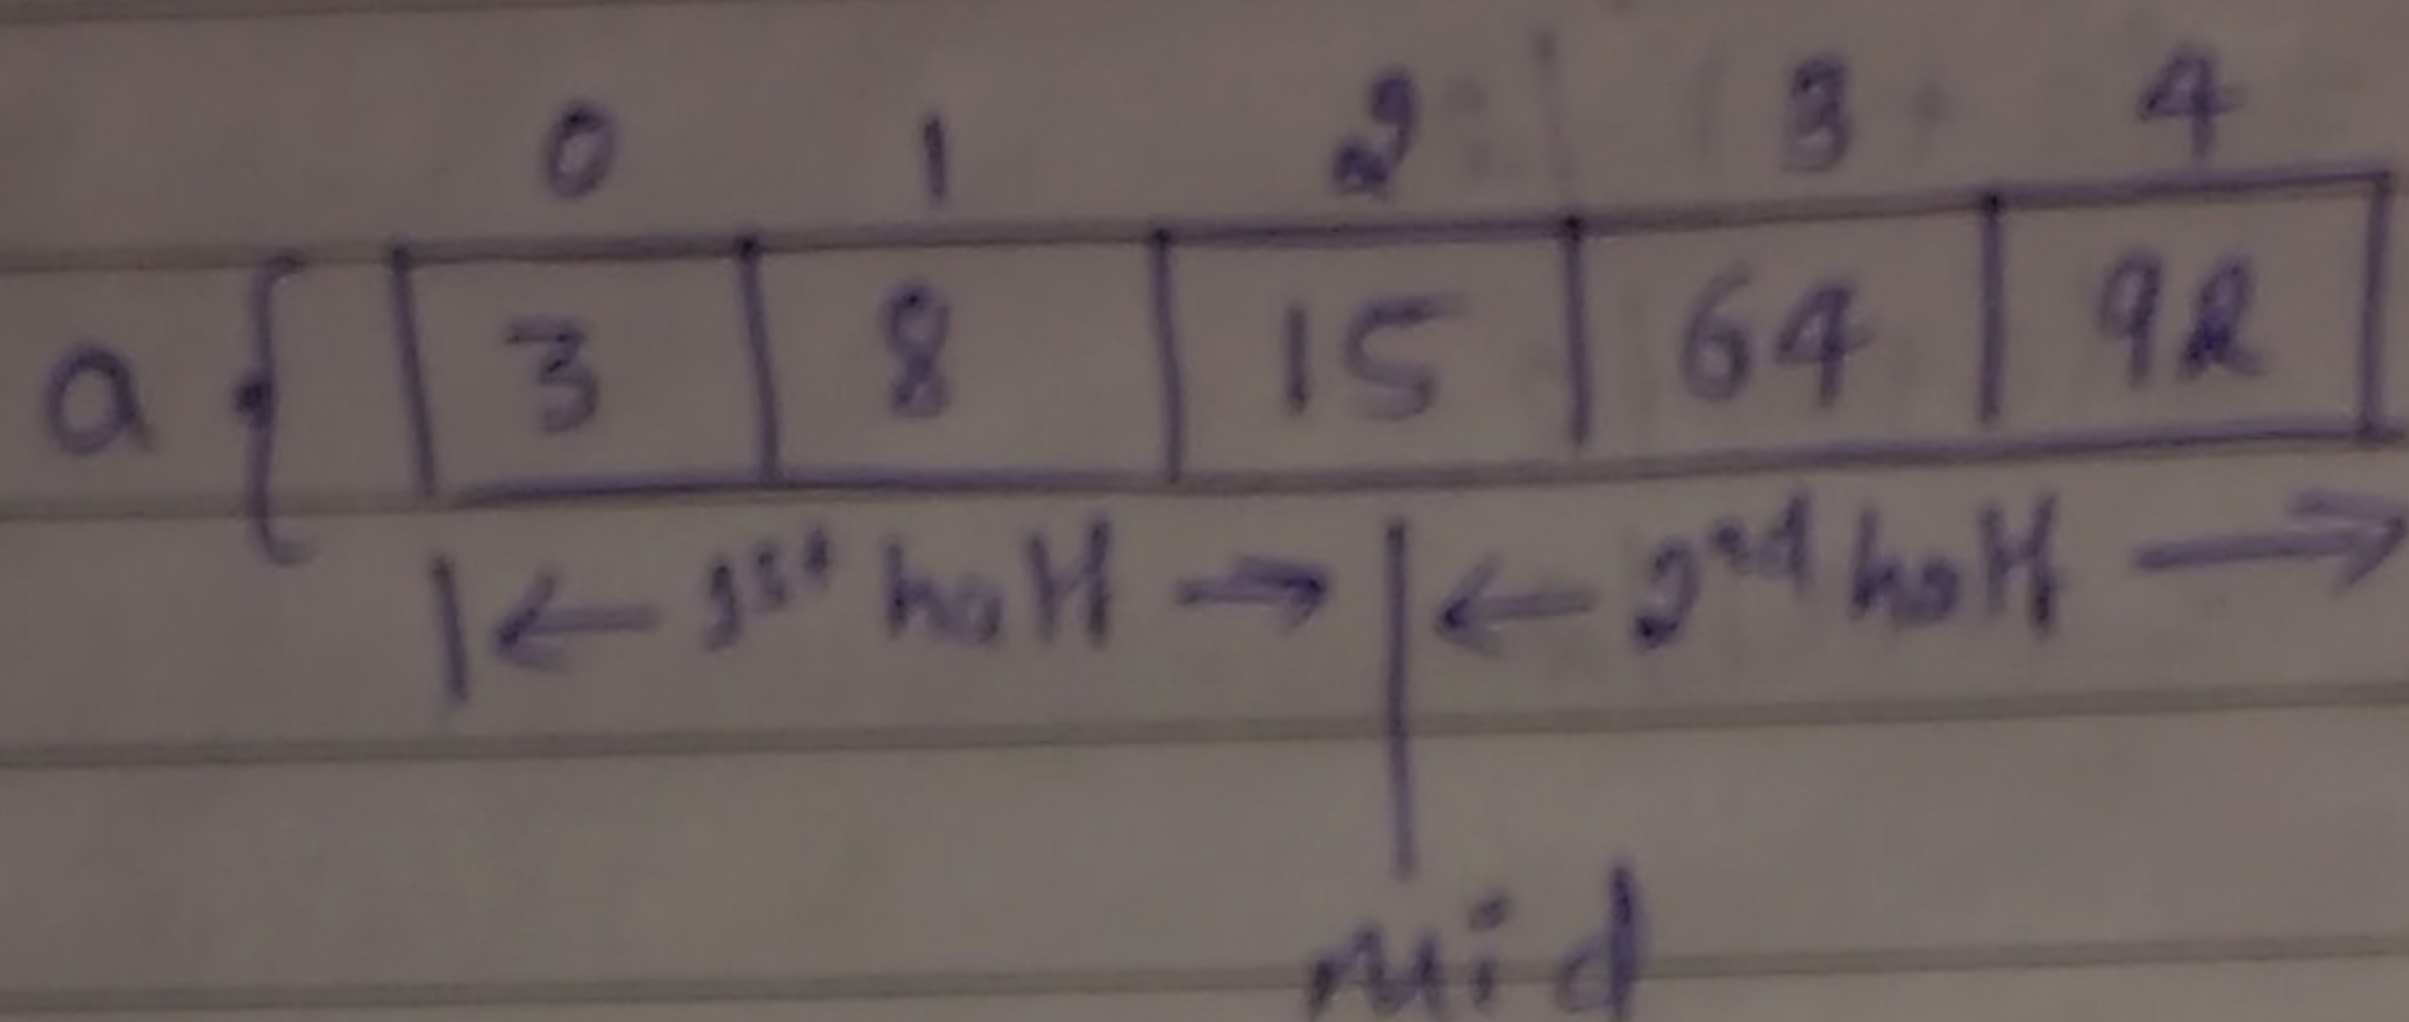 0 1 2 3 4
a { 3 8 15 64 92
1st half 2nd half
Mid